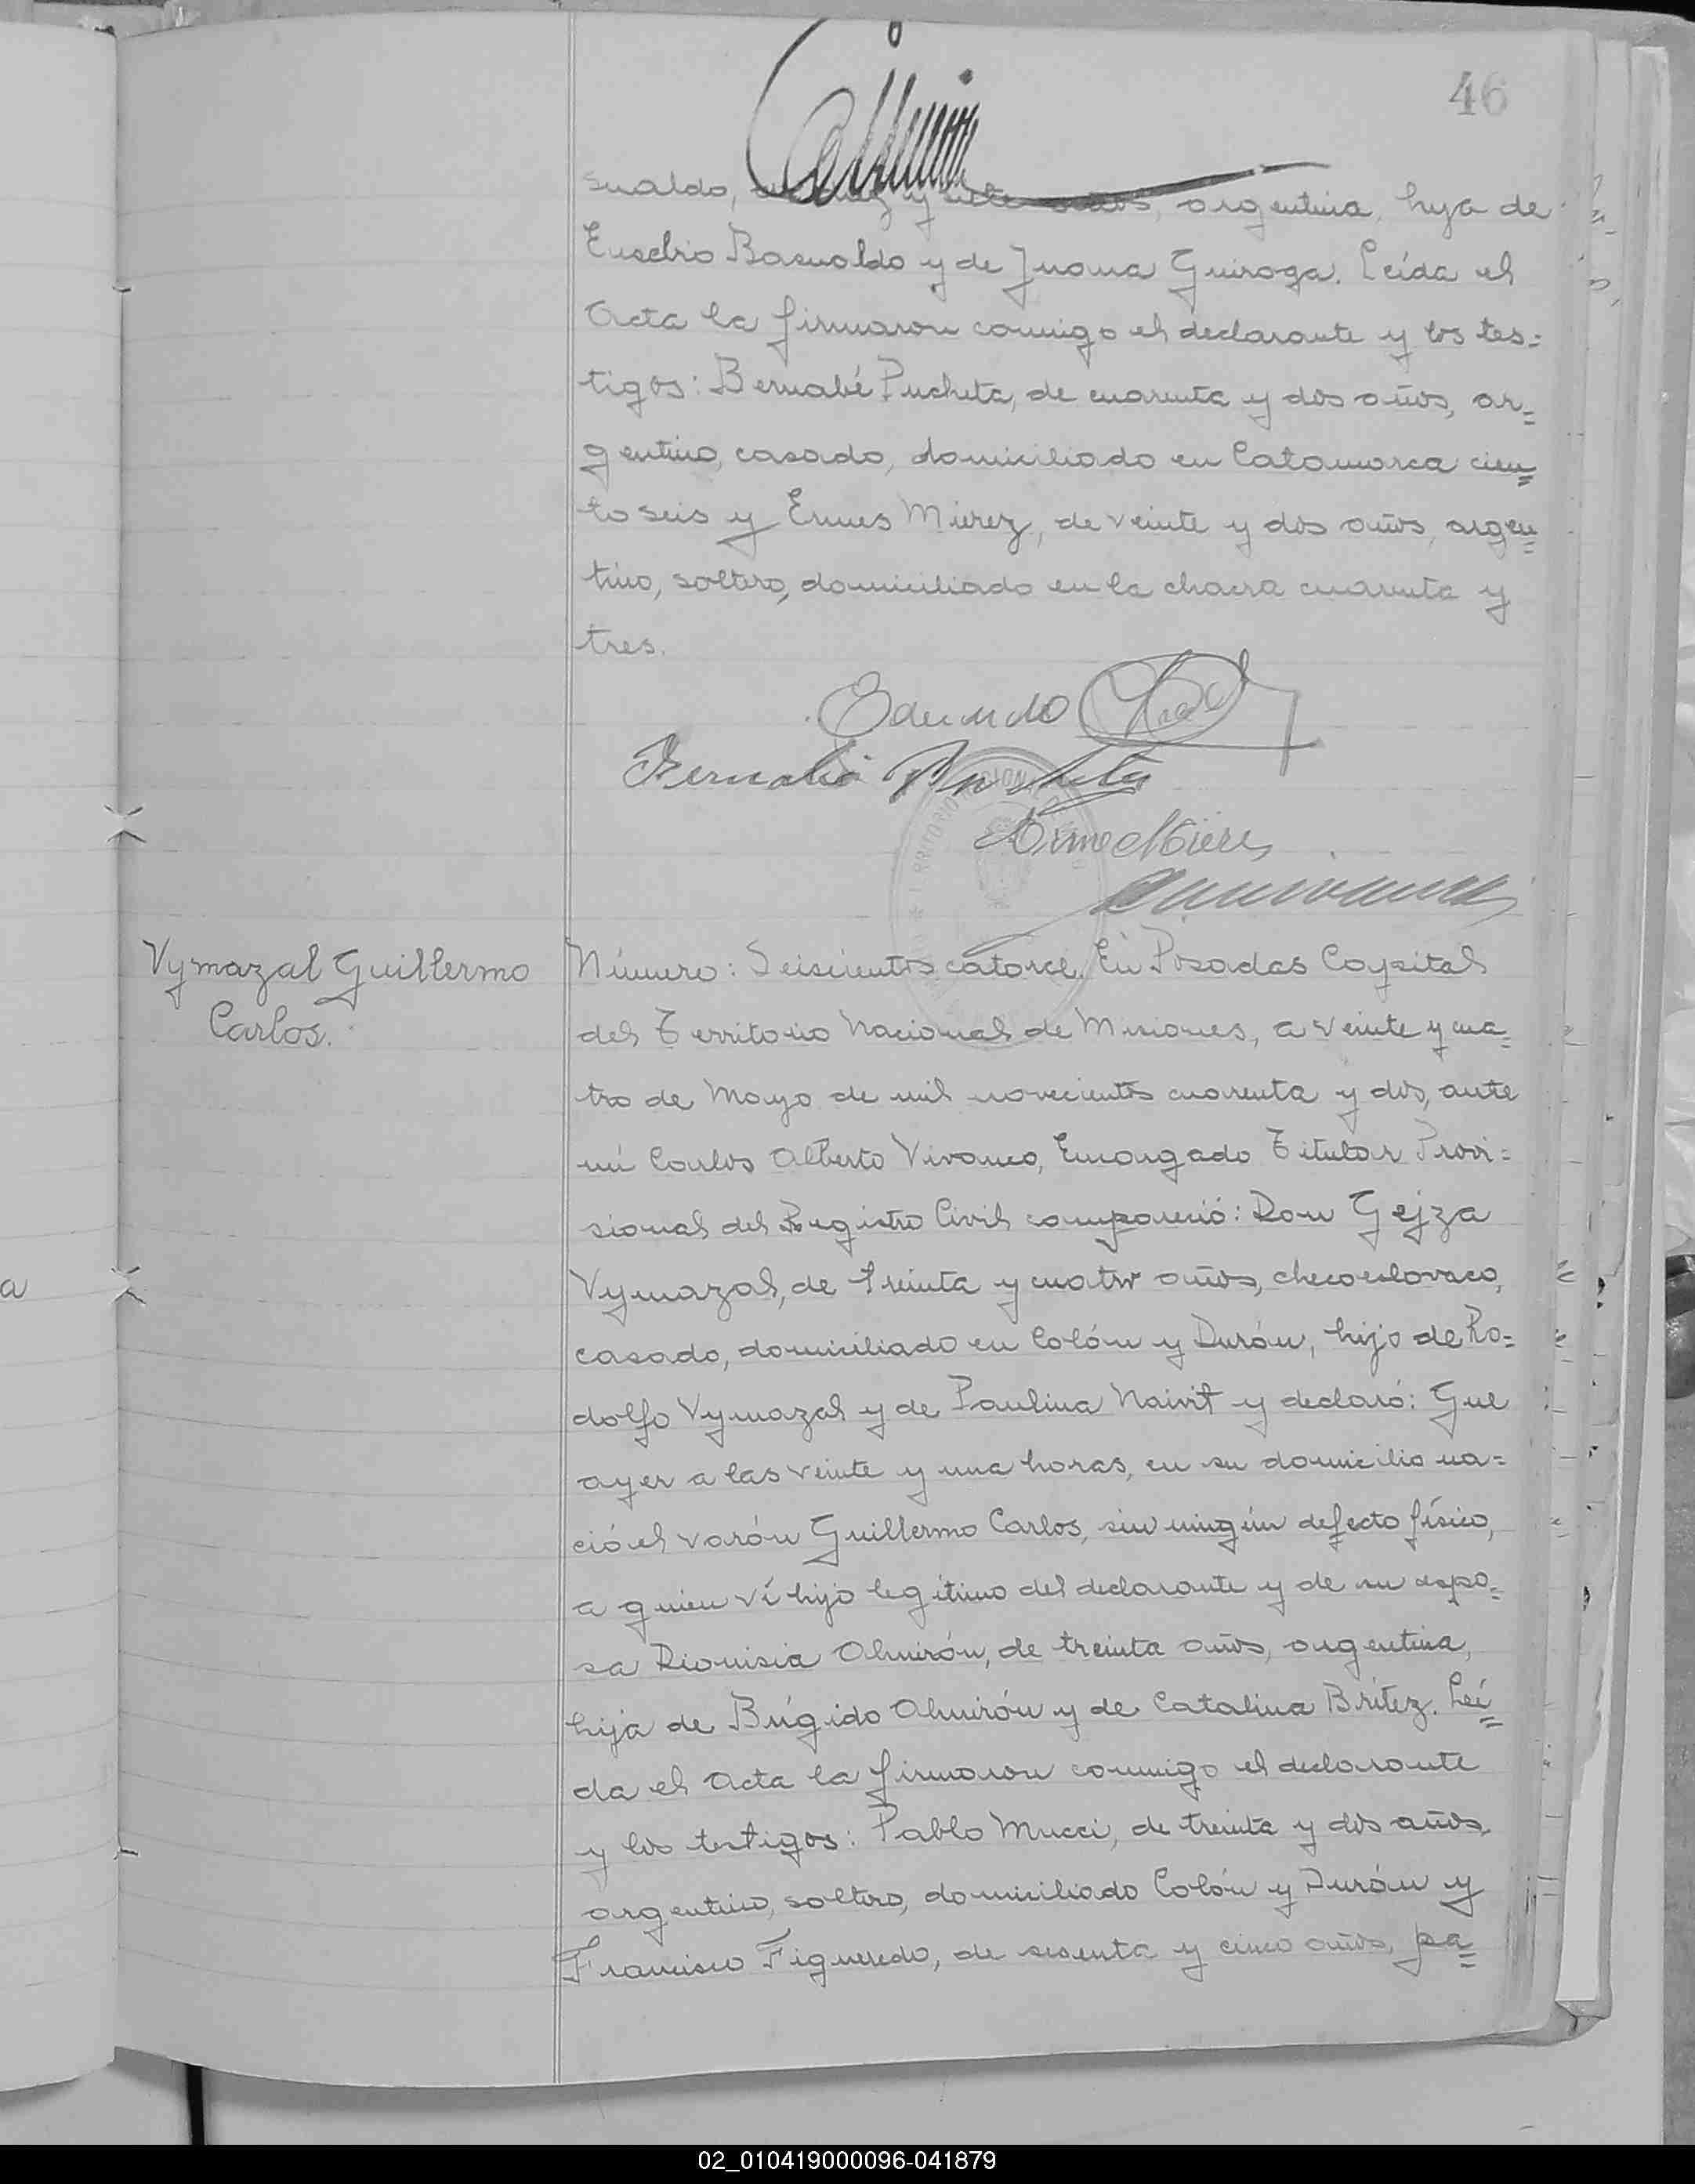 46
sualdo, de diez y siete años, argentina, hija de
Eusebio Basualdo y de Juana Quiroga. Leída el
Acta la firmaron conmigo el declarante y los tes=
tigos: Bernabé Pucheta, de cuarenta y dos años, ar=
gentino, casado, domiciliado en Catamarca cien=
to seis y Ermes Mierez, de veinte y dos años, argen=
tino, soltero, domiciliado en la chacra cuarenta y
tres.
Bernabé Pucheta
Vymazal Guillermo
Carlos.
Número: Seiscientos catorce. En Posadas Capital
del Territorio Nacional de Misiones, a veinte y cua=
tro de Mayo de mil novecientos cuarenta y dos, ante
mí Carlos Alberto Vivanco, Encargado Titular Provi=
sional del Registro Civil compareció: Don Gejza
Vymazal, de treinta y cuatro años, checoeslovaco,
casado, domiciliado en Colón y Durán, hijo de Ro=
dolfo Vymazal y de Paulina Naivit y declaró: Que
ayer a las veinte y una horas, en su domicilio na=
ció el varón Guillermo Carlos, sin ningún defecto físico,
a quien ví hijo legítimo del declarante y de su espo=
sa Dionisia Almirón, de treinta años, argentina,
hija de Brígido Almirón y de Catalina Brítez. Leí=
da el Acta la firmaron conmigo el declarante
y los testigos: Pablo Mucci, de treinta y dos años,
argentino, soltero, domiciliado Colón y Durán y
Francisco Figueredo, de sesenta y cinco años, pa=
02_010419000096-041879